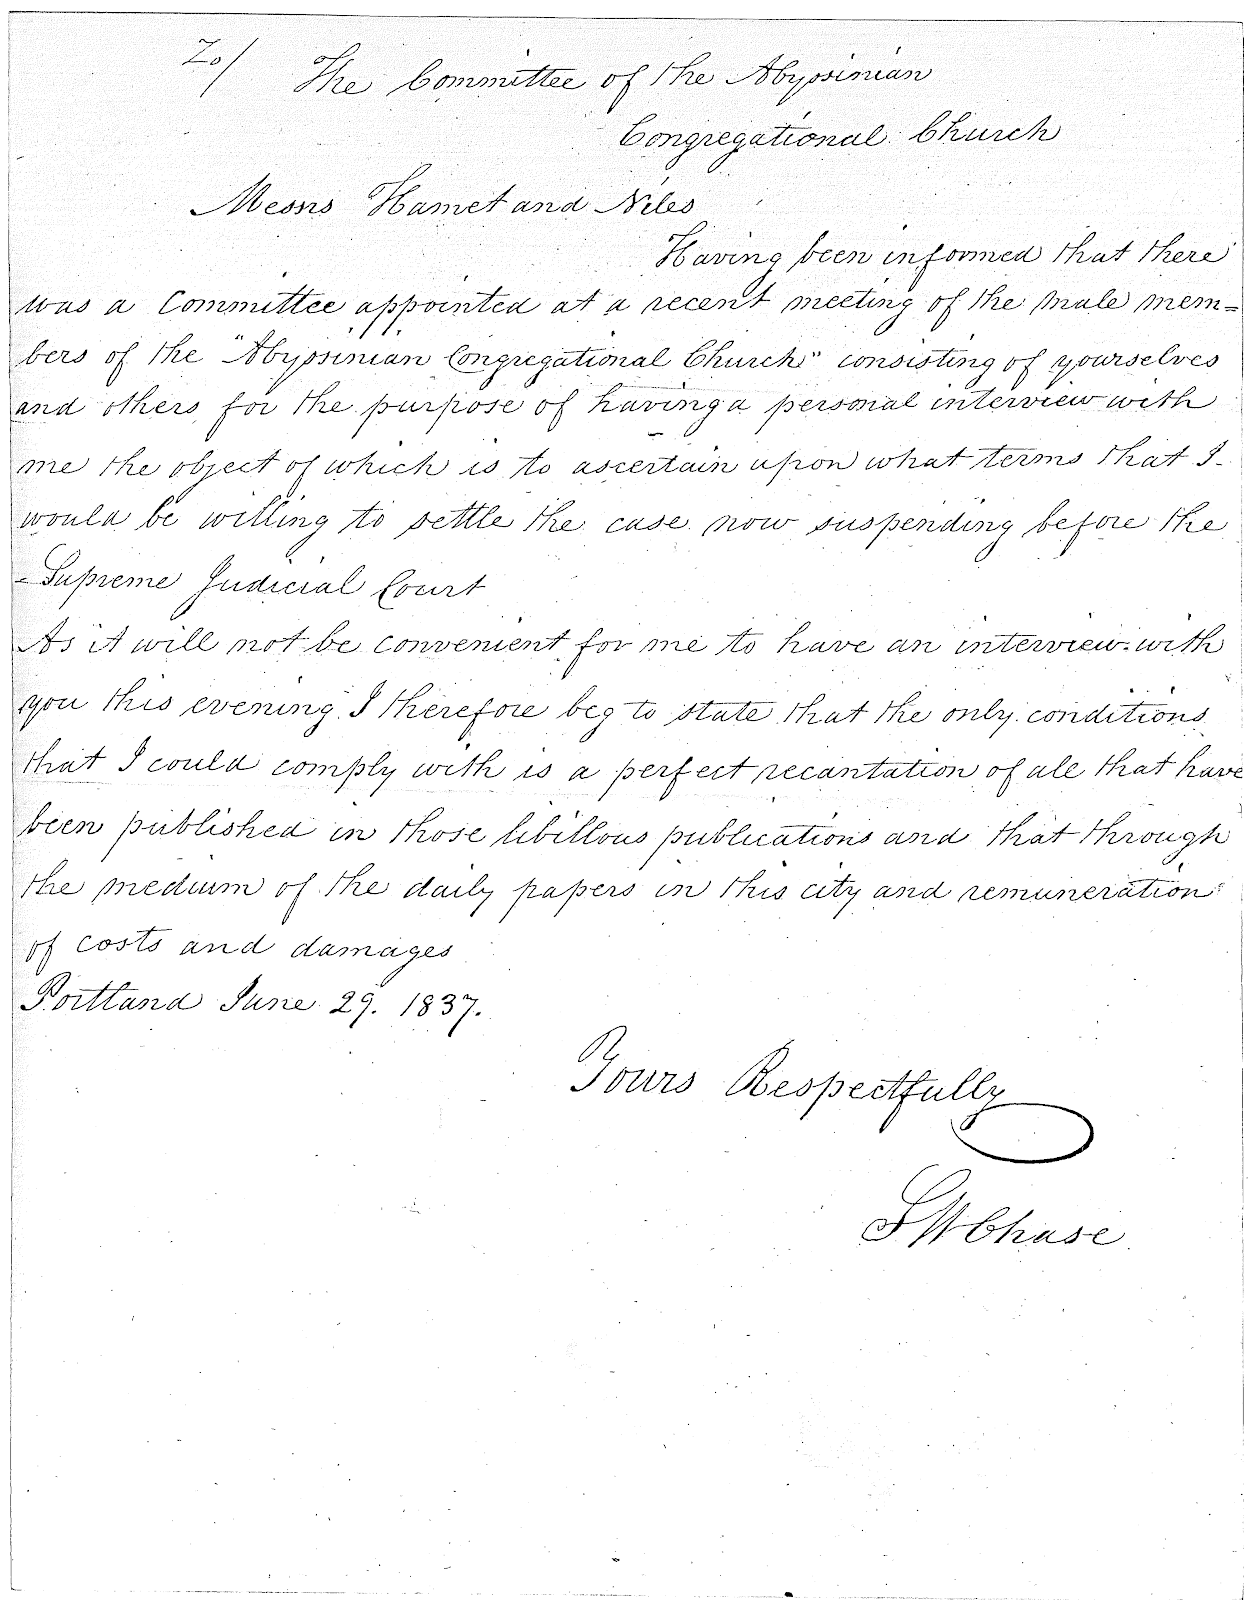 To/ The Committee of the Abyssinian
Congregational Church
Messrs Hamet and Niles
Having been informed that there
was a Committee appointed at a recent meeting of the male mem=
bers of the "Abyssinian Congregational Church" consisting of yourselves
and others, for the purpose of having a personal interview with
me the object of which is to ascertain upon what terms that I
would be willing to settle the case now suspending before the
Supreme Judicial Court
As it will not be convenient for me to have an interview with
you this evening I therefore beg to state that the only conditions
that I could comply with is a perfect recantation of all that have
been published in those libillous publications and that through
the medium of the daily papers in this city and remuneration
of costs and damages
Portland June 29. 1837.
Yours Respectfully
S W Chase